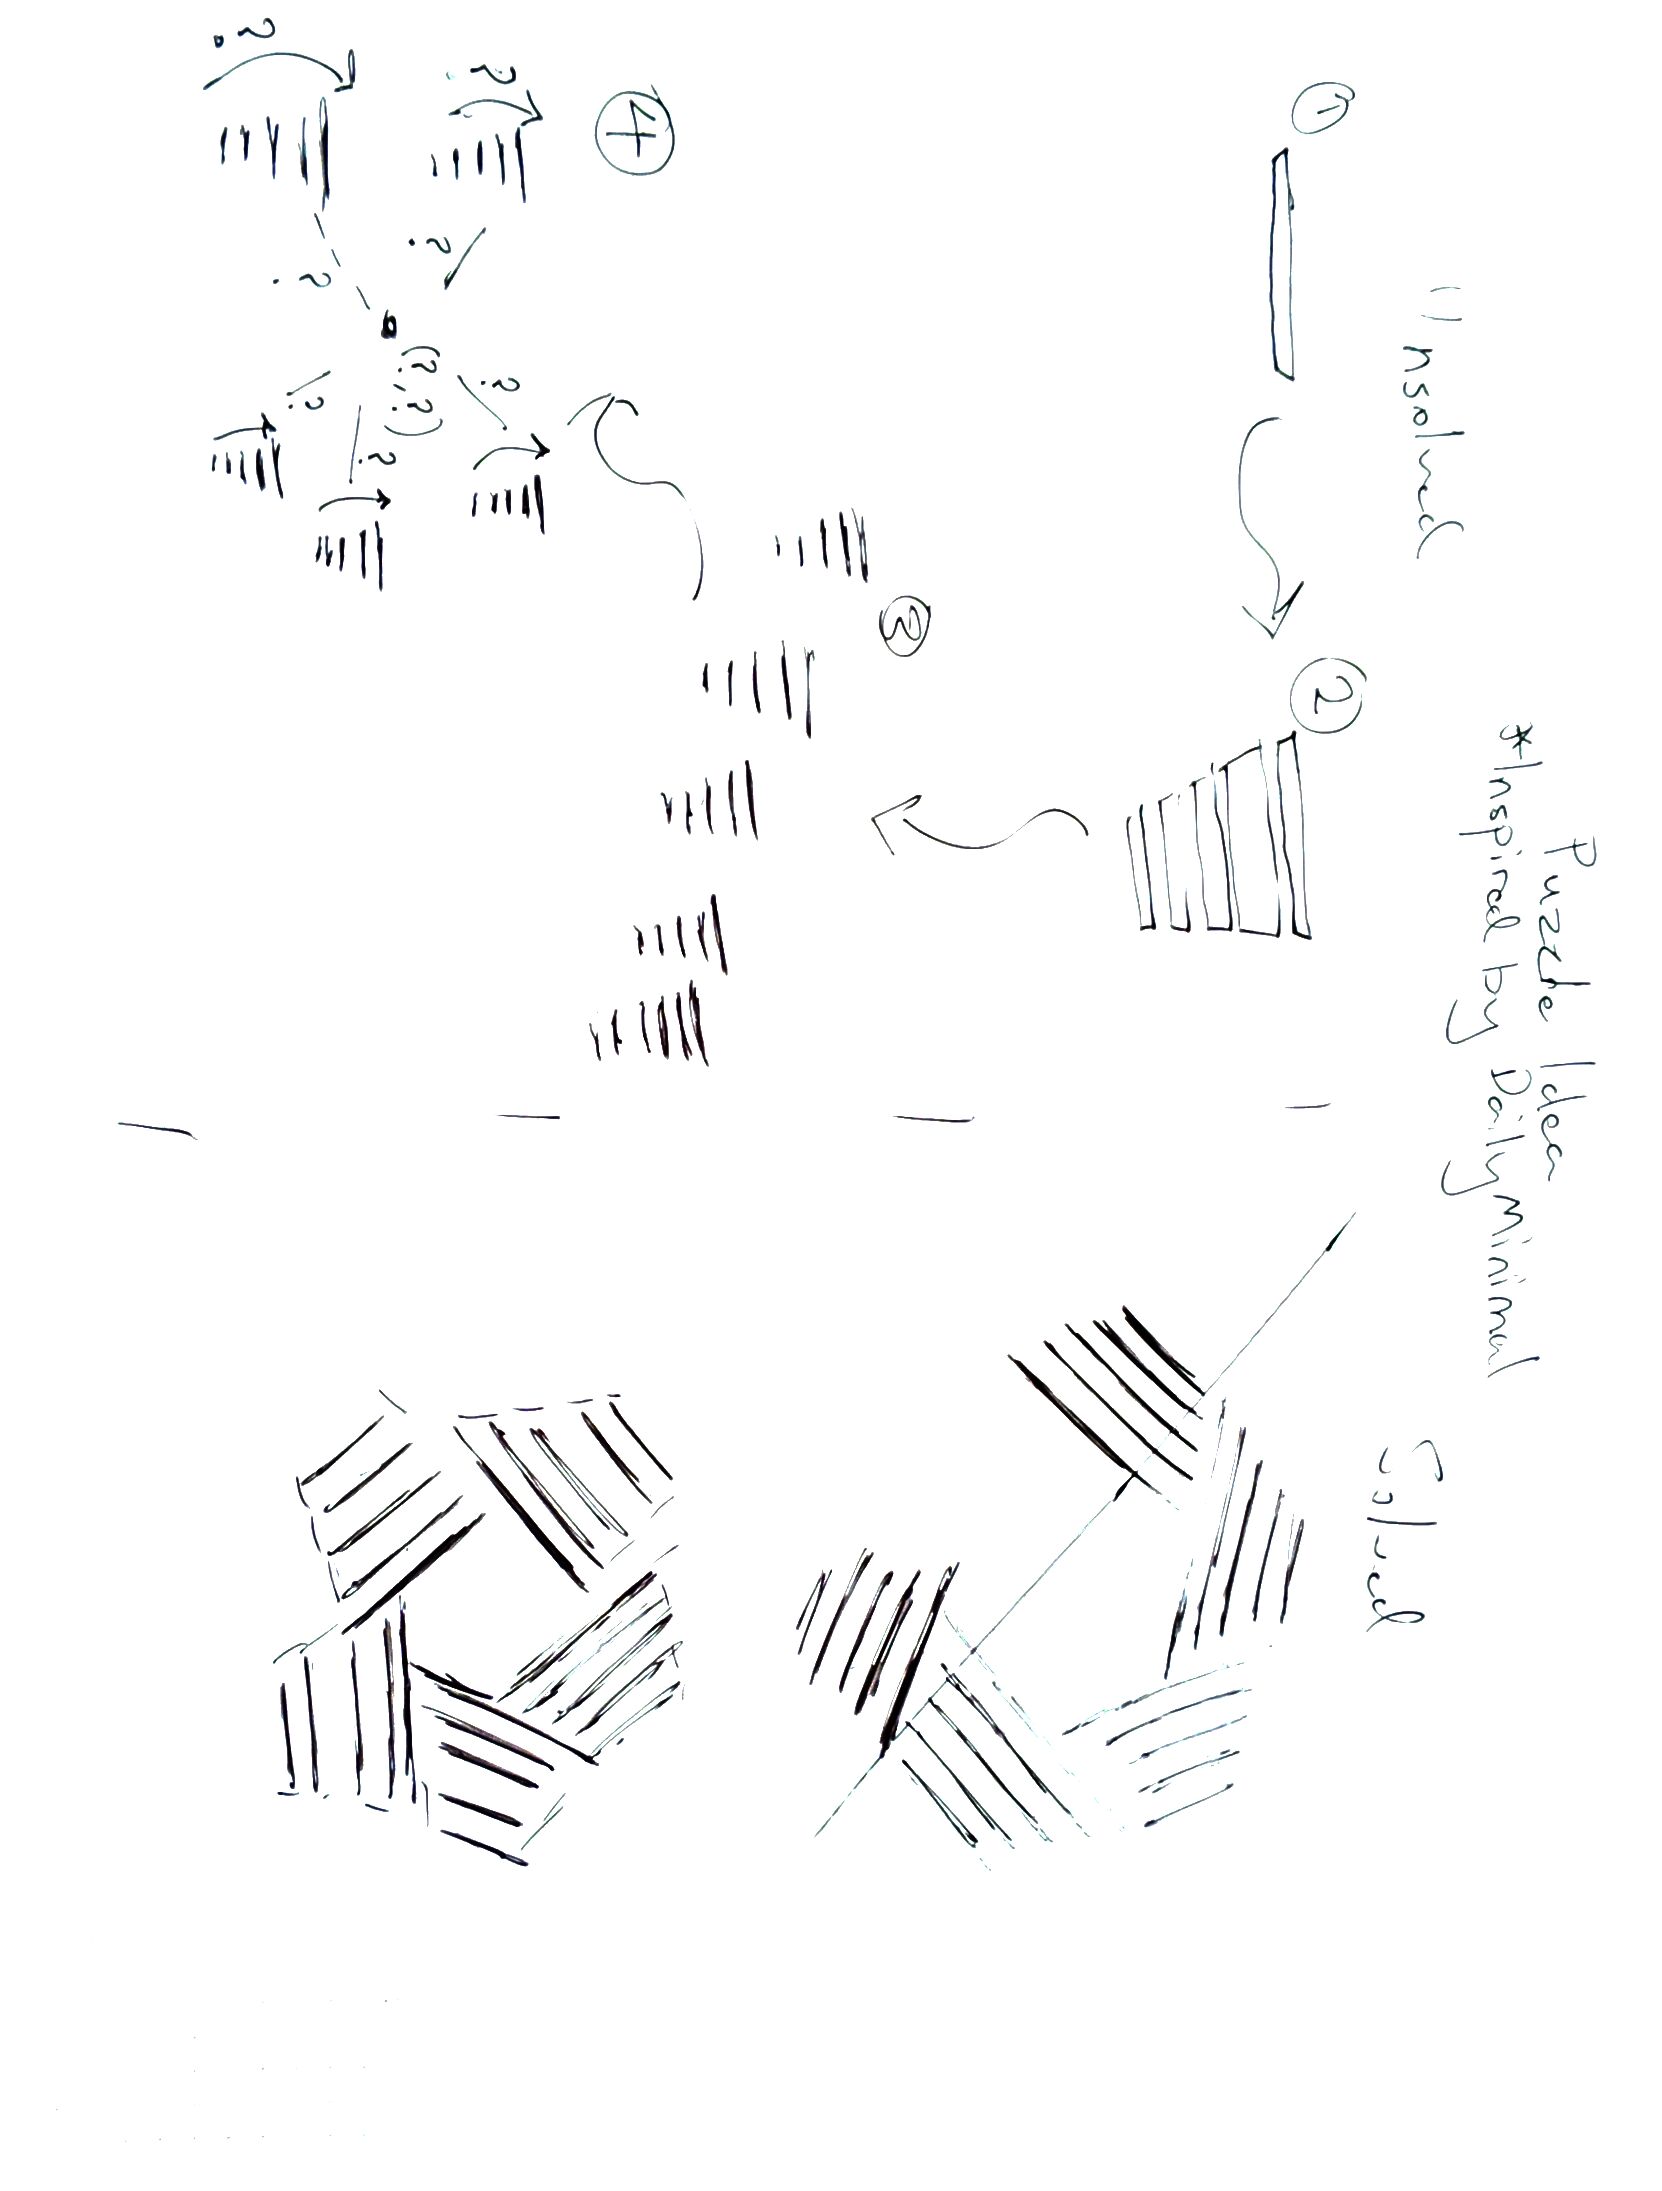 Puzzle Idea
*Inspired by Daily Minimal
Unsolved
Solved
①
②
③
④
?
?
?
?
(?,?)
?
?
?